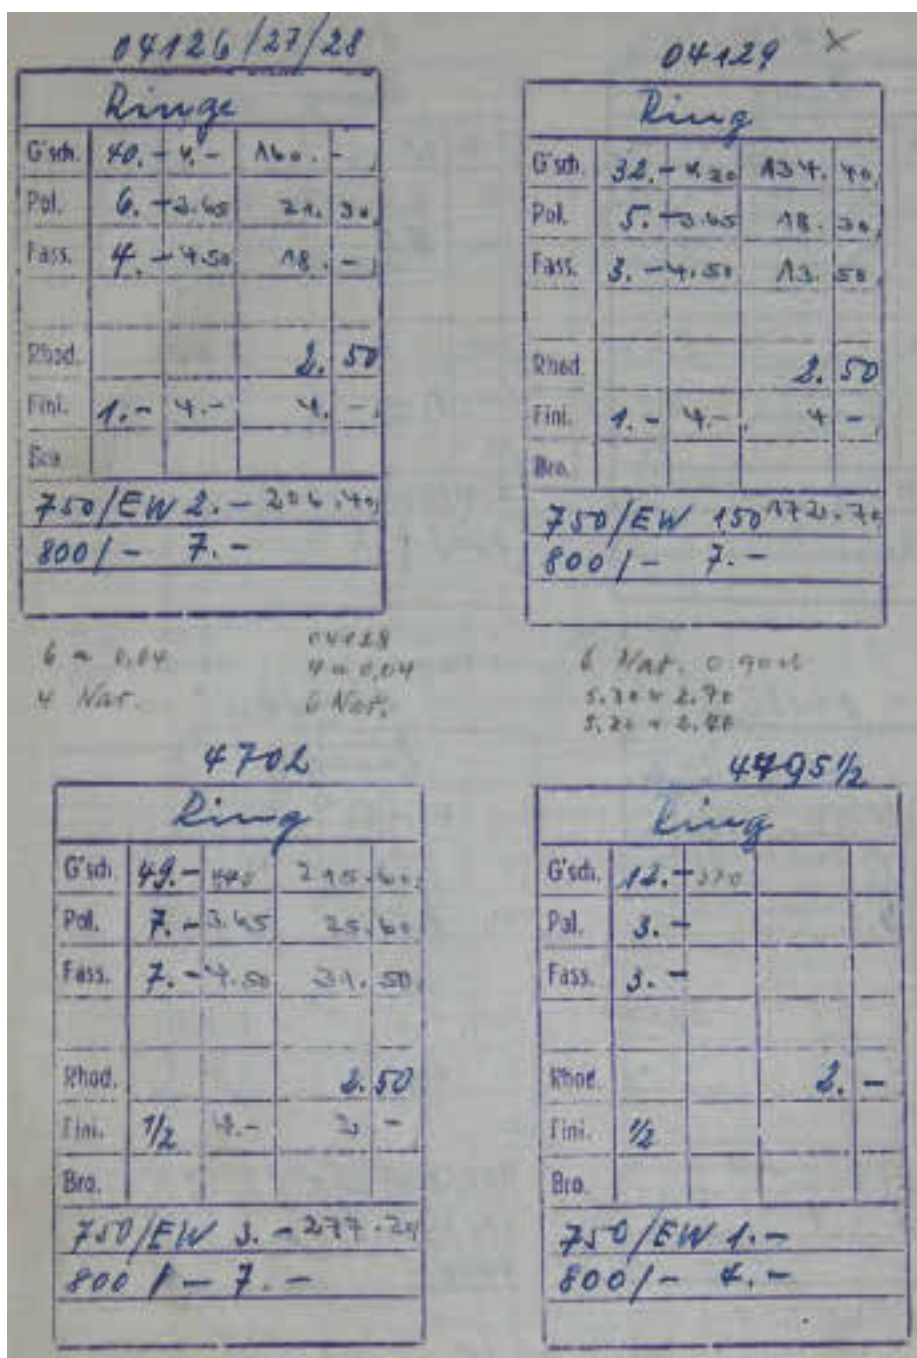 04126/27/28
Ringe
G'sch. 40.- 4.- 160. -
Pol. 6.- 3.65 21. 90
Fass. 4.- 4.50 18. -
Rhod. 2. 50
Fini. 1.- 4.- 4. -
Bro.
750/EW 2.- 206.40
800/- 7.-
6 a 0,04
4 Nat.
04128
4 a 0,04
6 Nat.
04129
Ring
G'sch. 32.- 4.20 134. 40
Pol. 5.- 3.65 18. 30
Fass. 3.- 4.50 13. 50
Rhod. 2. 50
Fini. 1.- 4.- 4 -
Bro.
750/EW 150 172.70
800/- 7.-
6 Nat.
4702
Ring
G'sch. 49.- 440 215. 60
Pol. 7.- 3.65 25. 60
Fass. 7.- 4.50 31. 50
Rhod. 2. 50
Fini. 1/2 4.- 2 -
Bro.
750/EW 3.- 277.20
800/- 7.-
4795 1/2
Ring
G'sch. 12.- 370
Pol. 3.-
Fass. 3.-
Rhod. 2. -
Fini. 1/2
Bro.
750/EW 1.-
800/- 4.-